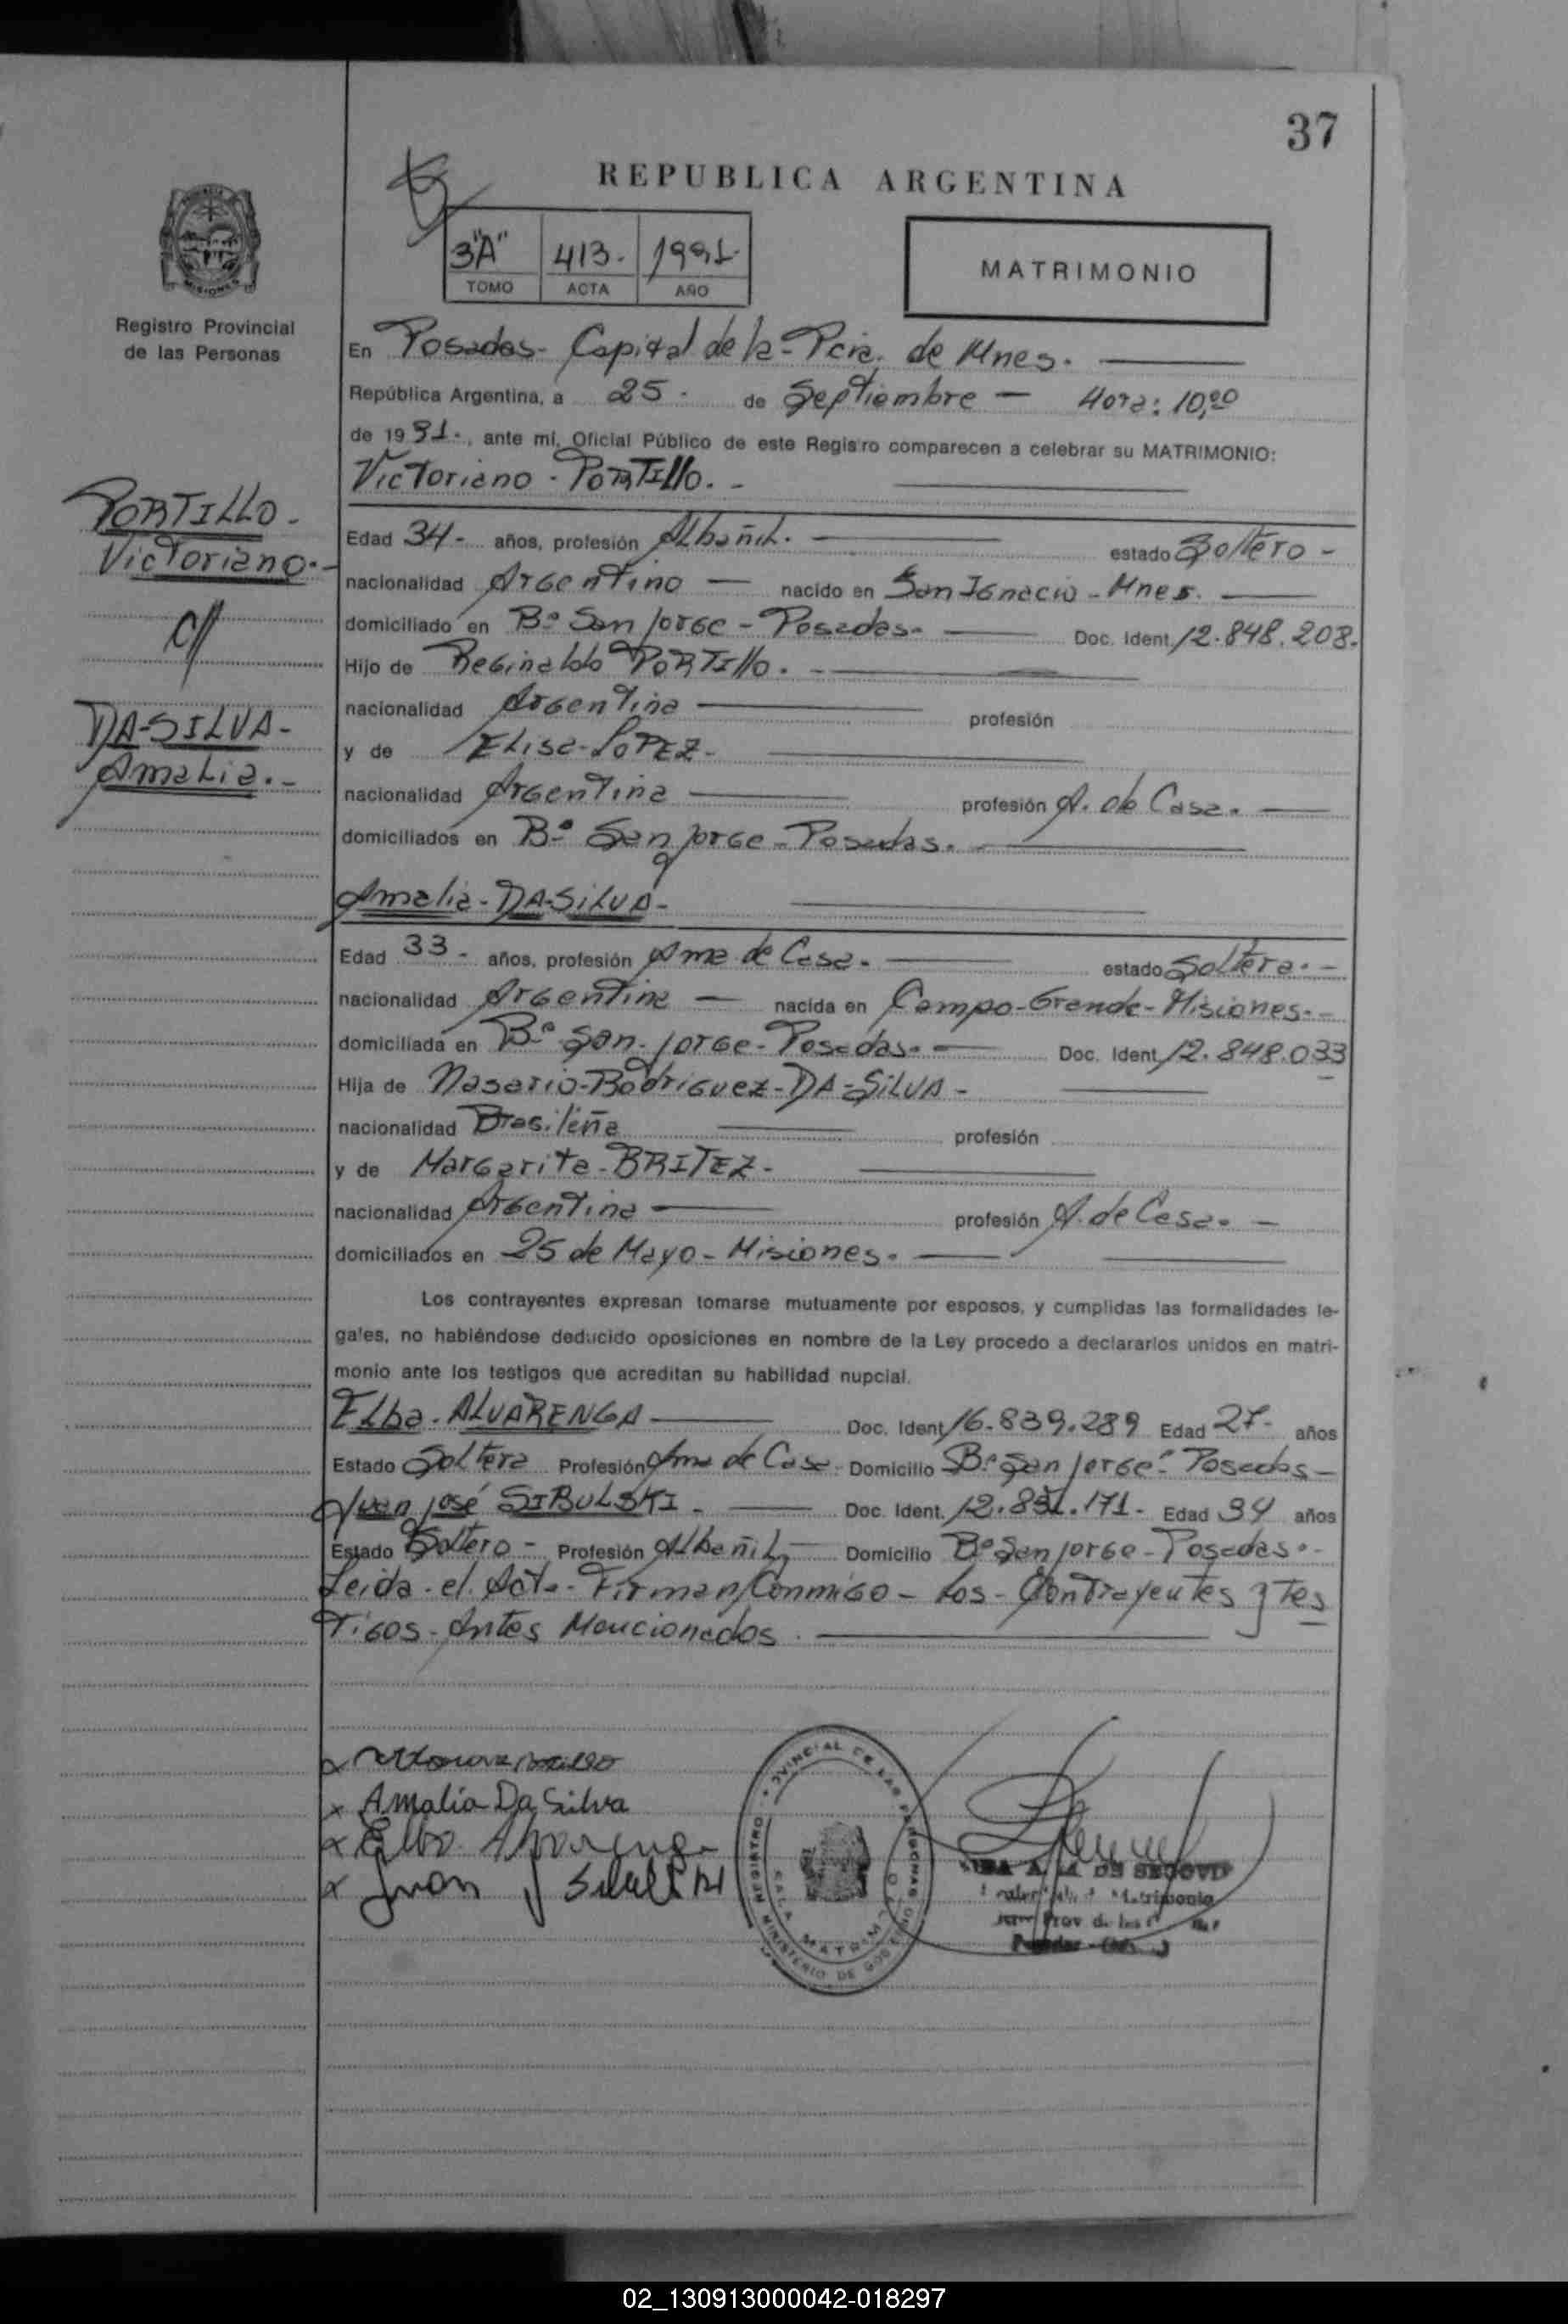 37
REPUBLICA ARGENTINA
3"A" 413. 1991.
TOMO ACTA AÑO
MATRIMONIO
Registro Provincial
de las Personas
En Posadas- Capital de la- Pcia. de Mnes.
República Argentina, a 25. de Septiembre - Hora: 10,00
de 1991., ante mi, Oficial Público de este Registro comparecen a celebrar su MATRIMONIO:
Victoriano - PORTIllo. -
PORTILLO -
Victoriano. -
c//
DA-SILVA-
Amalia. -
Edad 34- años, profesión Albañil. estado Soltero -
nacionalidad Argentino - nacido en San Ignacio - Mnes.
domiciliado en Bº San Jorge - Posadas. Doc. Ident. 12.848.208.
Hijo de Reginaldo PORTIllo. -
nacionalidad Argentina profesión
y de Elisa - LOPEZ -
nacionalidad Argentina profesión A. de Casa.
domiciliados en Bº San Jorge - Posadas.
Amalia - DA-SILVA -
Edad 33 - años, profesión Ama de Casa. estado Soltera. -
nacionalidad Argentina - nacida en Campo-Grande-Misiones. -
domiciliada en Bº San - Jorge - Posadas. Doc. Ident. 12.848.033
Hija de Nasario-Rodriguez-DA-SILVA -
nacionalidad Brasileña profesión
y de Margarita - BRITEZ -
nacionalidad Argentina profesión A. de Casa. -
domiciliados en 25 de Mayo - Misiones.
Los contrayentes expresan tomarse mutuamente por esposos, y cumplidas las formalidades le-
gales, no habiéndose deducido oposiciones en nombre de la Ley procedo a declararlos unidos en matri-
monio ante los testigos que acreditan su habilidad nupcial.
Elba - ALVARENGA Doc. Ident. 16.839.289 Edad 27- años
Estado Soltera Profesión Ama de Casa. Domicilio Bº San Jorge - Posadas -
Juan José SIBULSKI - Doc. Ident. 12.851.171 - Edad 34 años
Estado Soltero - Profesión Albañil, Domicilio Bº San Jorge - Posadas. -
Leida - el Acta - Firman Conmigo - Los - Contrayentes y Tes
Tigos - Antes Mencionados.
x
x Amalia Da Silva
x Elba Alvarenga
x Juan J
REGISTRO PROVINCIAL DE LAS PERSONAS
SALA MATRIMONIO
MINISTERIO DE GOBIERNO
DE SEGOVIA
Matrimonio
Prov de las
Posadas
02_130913000042-018297